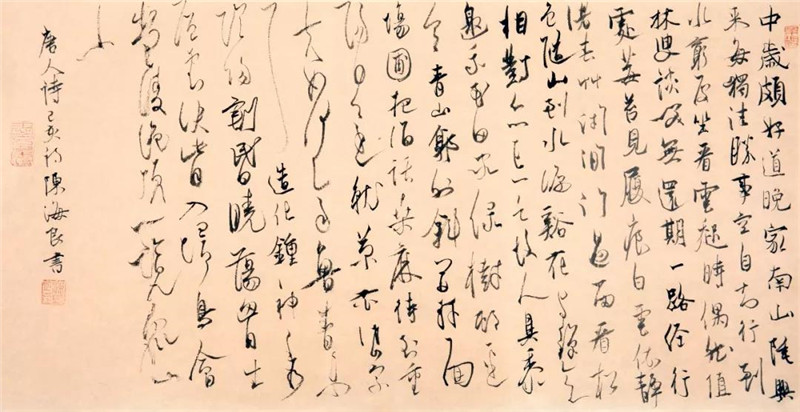 中歲頗好道晚家南山陲興
來每獨往勝事空自知行到
水窮處坐看雲起時偶然值
林叟談笑無還期一路經行
處莓苔見履痕白雲依靜
渚春草閉閒門過雨看松
色隨山到水源溪花與禪意
相對亦忘言故人具雞黍
邀我至田家綠樹村邊
合青山郭外斜開軒面
場圃把酒話桑麻待到重
陽日還來就菊花岱宗
夫如何齊魯青未
了
造化鍾神秀
陰陽割昏曉蕩胸生
層雲決眥入歸鳥會
當凌絕頂一覽眾山
小
唐人詩己亥陳海良書